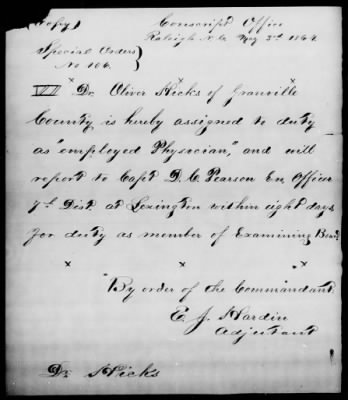 (Copy) Conscript Office
Raleigh N.C. May 3rd 1864.
Special Orders }
No 106. }
x x x
VII Dr Oliver Hicks of Granville
County is hereby assigned to duty
as "employed Physician," and will
report to Capt D. C. Pearson En. Officer
7th Dist. at Lexington within eight days
for duty as member of Examining Board
x x x
By order of the Commandant.
E. J. Hardin
Adjutant
Dr Hicks